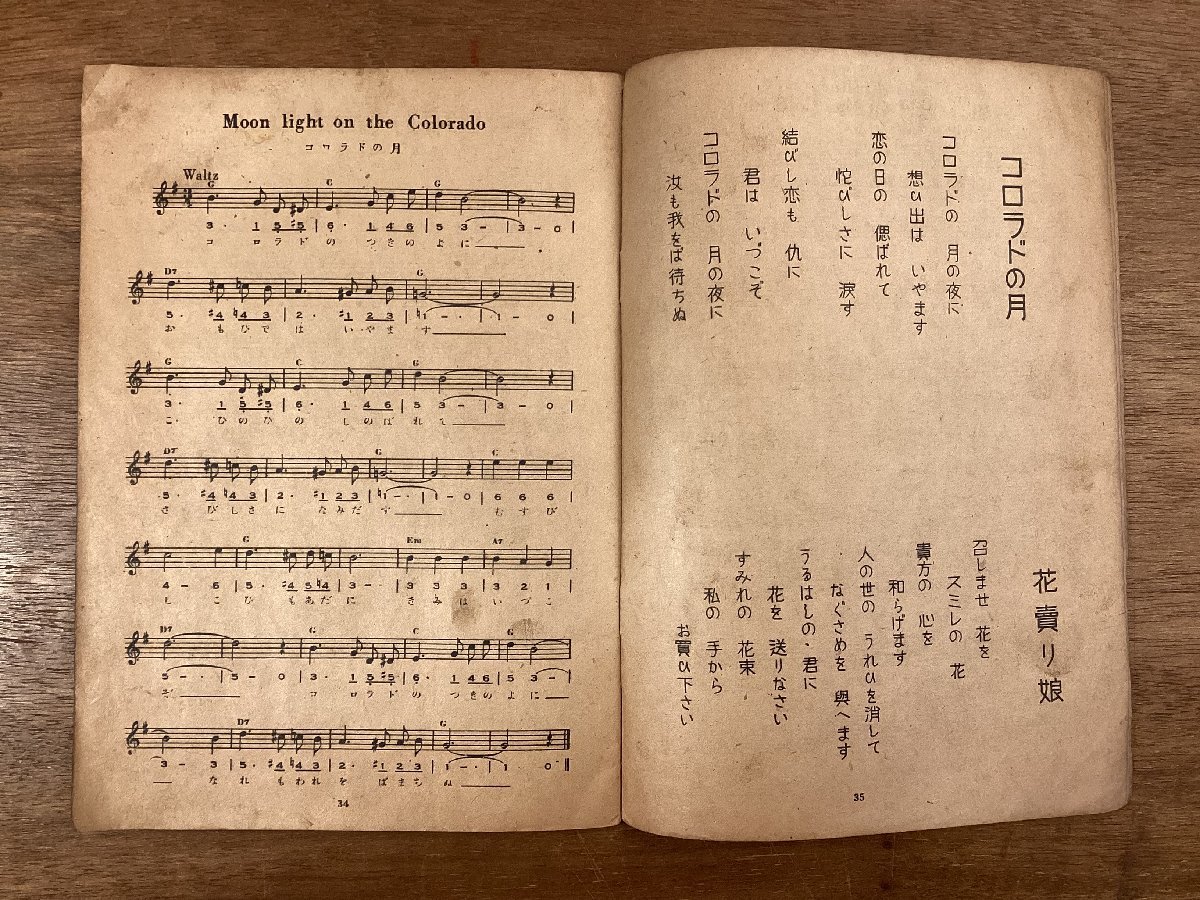 Moon light on the Colorado
コロラドの月
Waltz
G C G
3・ 1 5 #5 | 6・ 1 4 6 | 5 3 － | 3 － 0 |
コ ロ ラ ド の つ き の よ に
D7 G
5・ #4 ♮4 3 | 2・ #1 2 3 | ♮1 － ・ | 1 － 0 |
お も ひ で は い や ま す
G C G
3・ 1 5 #5 | 6・ 1 4 6 | 5 3 － | 3 － 0 |
こ ひ の ひ の し の ば れ て
D7 G C
5・ #4 ♮4 3 | 2・ #1 2 3 | ♮1 － ・ | 1 － 0 | 6 6 6 |
さ び し さ に な み だ す む す び
G Em A7
4 － 6 | 5・ #4 5 ♮4 | 3 － ・ | 3 3 3 | 3 2 1 |
し こ ひ も あ だ に き み は い づ こ
D7 G C G
5 － ・ | 5 － 0 | 3・ 1 5 #5 | 6・ 1 4 6 | 5 3 － |
ぞ コ ロ ラ ド の つ き の よ に
D7 G
3 － 3 | 5・ #4 ♮4 3 | 2・ #1 2 3 | 1 － ・ | 1 0 ‖
な れ も わ れ を ば ま ち ぬ
34
コロラドの月
コロラドの 月の夜に
想ひ出は いやます
恋の日の 偲ばれて
佗びしさに 涙す
結びし恋も 仇に
君は いづこぞ
コロラドの 月の夜に
汝も我をば待ちぬ
花賣り娘
召しませ 花を
スミレの 花
貴方の 心を
和らげます
人の世の うれひを消して
なぐさめを 與へます
うるはしの・君に
花を 送りなさい
すみれの 花束
私の 手から
お買ひ下さい
35